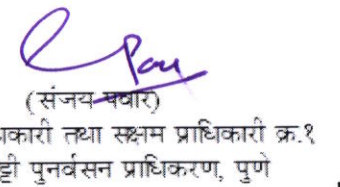 (संजय पवार)
धिकारी तथा सक्षम प्राधिकारी क्र.१
पुनर्वसन प्राधिकरण, पुणे